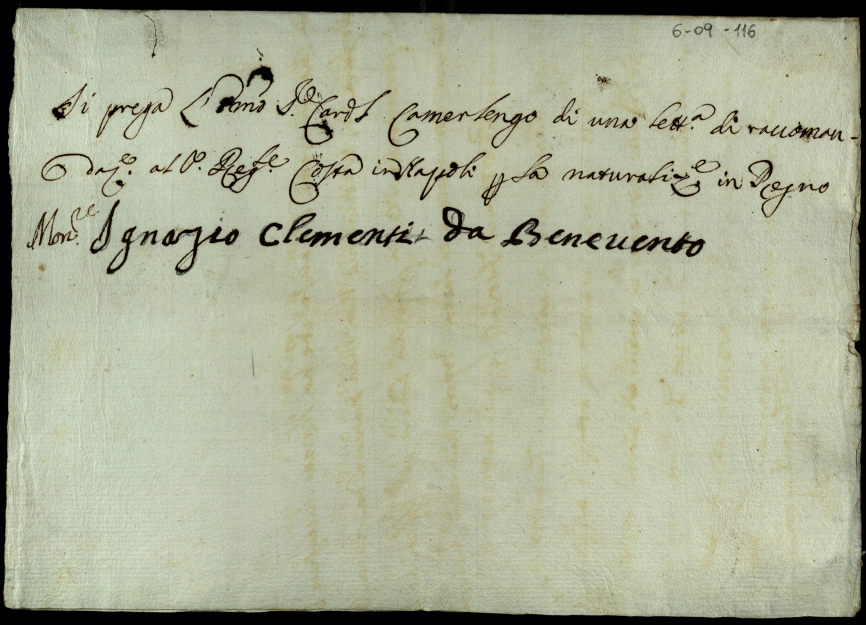 6-09-116
Si prega l'Emo Sr. Card.l Camerlengo di una lett.a di raccoman-
daz.e al S.r Regg.te Costa in Napoli p la naturaliz.e in Regno
Mons.re Ignazio Clementi da Benevento